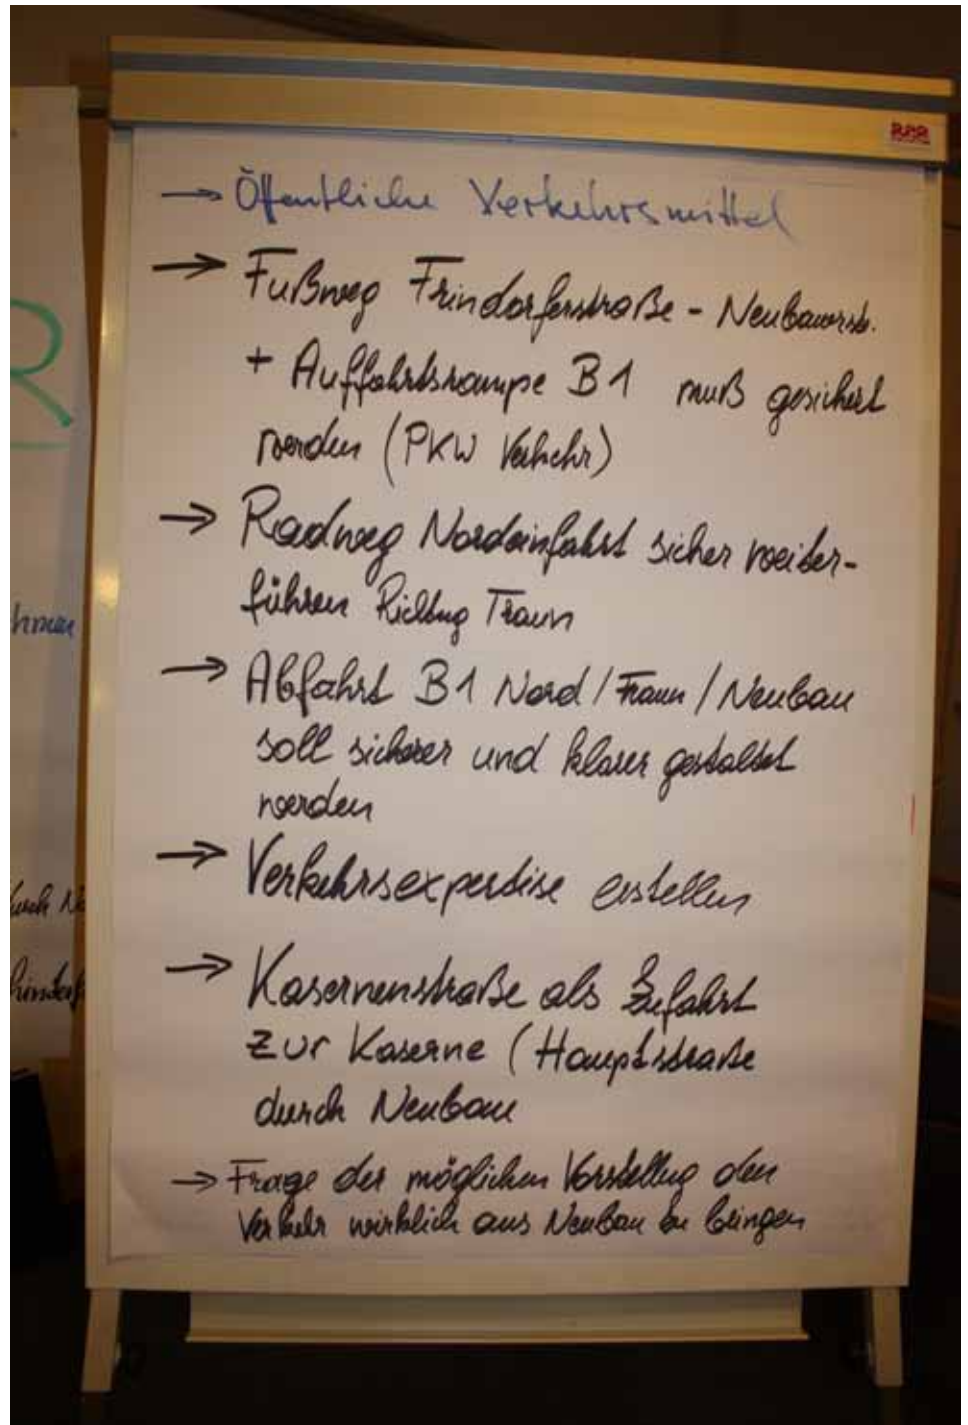 → Öffentliche Verkehrsmittel
→ Fußweg Trindorferstraße - Neubauerstr.
+ Auffahrtsrampe B1 muß gesichert
werden (PKW Verkehr)
→ Radweg Nordeinfahrt sicher weiter-
führen Richtung Traun
→ Abfahrt B1 Nord / Traun / Neubau
soll sicherer und klarer gestaltet
werden
→ Verkehrsexpertise erstellen
→ Kasernenstraße als Zufahrt
zur Kaserne (Hauptstraße
durch Neubau
→ Frage der möglichen Vorstellung den
Verkehr wirklich aus Neubau zu bringen
R